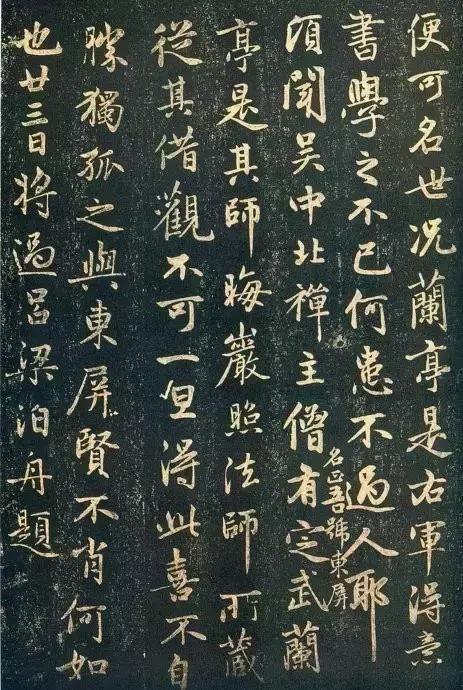 便可名世况蘭亭是右軍得意
書學之不已何患不過人耶
頃聞吴中北禪主僧有定武蘭
名號東屏
亭是其師晦巖照法師所藏
從其借觀不可一旦得此喜不自
勝獨孤之與東屏賢不肖何如
也廿三日將過吕梁泊舟題